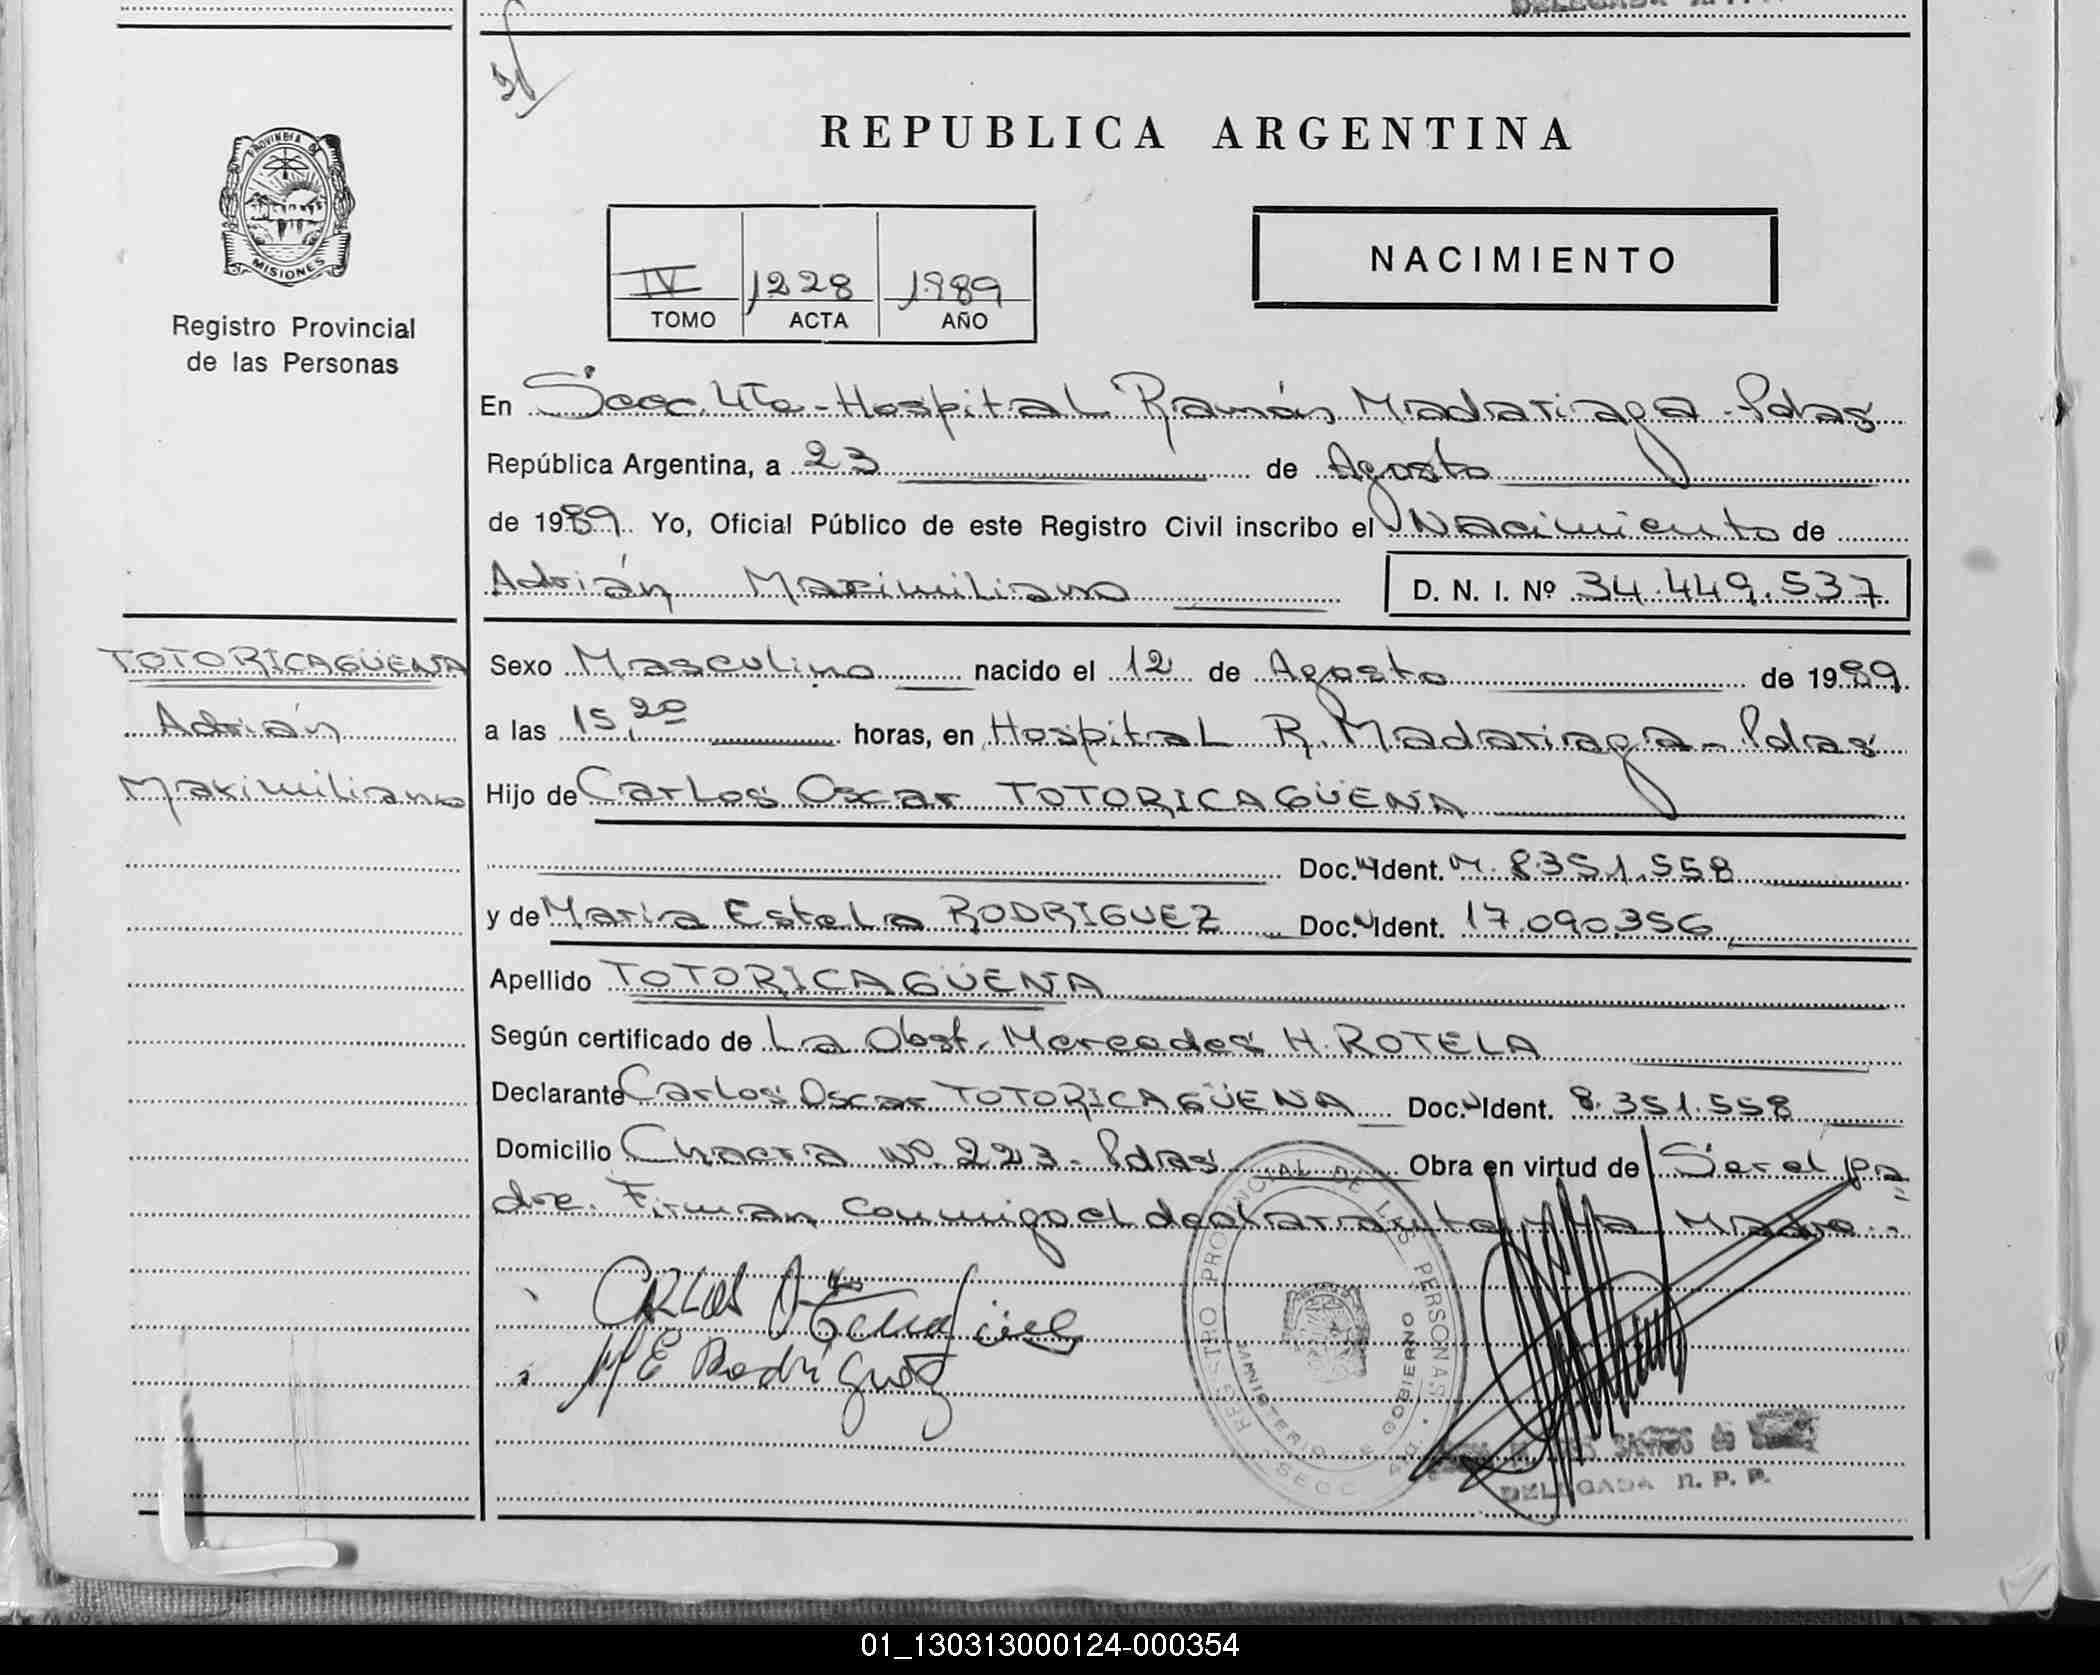 PROVINCIA DE
MISIONES
Registro Provincial
de las Personas
REPUBLICA ARGENTINA
IV 1228 1989
TOMO ACTA AÑO
NACIMIENTO
En Secc. 4ta - Hospital Ramón Madariaga - Pdas
República Argentina, a 23 de Agosto
de 1989. Yo, Oficial Público de este Registro Civil inscribo el Nacimiento de
Adrián Maximiliano D. N. I. Nº 34.449.537
TOTORICAGÜENA
Adrián
Maximiliano
Sexo Masculino nacido el 12 de Agosto de 1989.
a las 15,20 horas, en Hospital R. Madariaga - Pdas
Hijo de Carlos Oscar TOTORICAGÜENA
Doc. Ident. M. 8351.558
y de María Estela RODRIGUEZ Doc. Ident. 17.090.356
Apellido TOTORICAGÜENA
Según certificado de La Obst. Mercedes H. ROTELA
Declarante Carlos Oscar TOTORICAGÜENA Doc. Ident. 8.351.558
Domicilio Chacra Nº 223 - Pdas Obra en virtud de Ser el pa
dre. Firman conmigo el declarante y la Madre.
CARLOS
M E Rodríguez
REGISTRO PROVINCIAL DE LAS PERSONAS
MINISTERIO DE GOBIERNO
SECC
DELEGADA R. P. P.
01_130313000124-000354